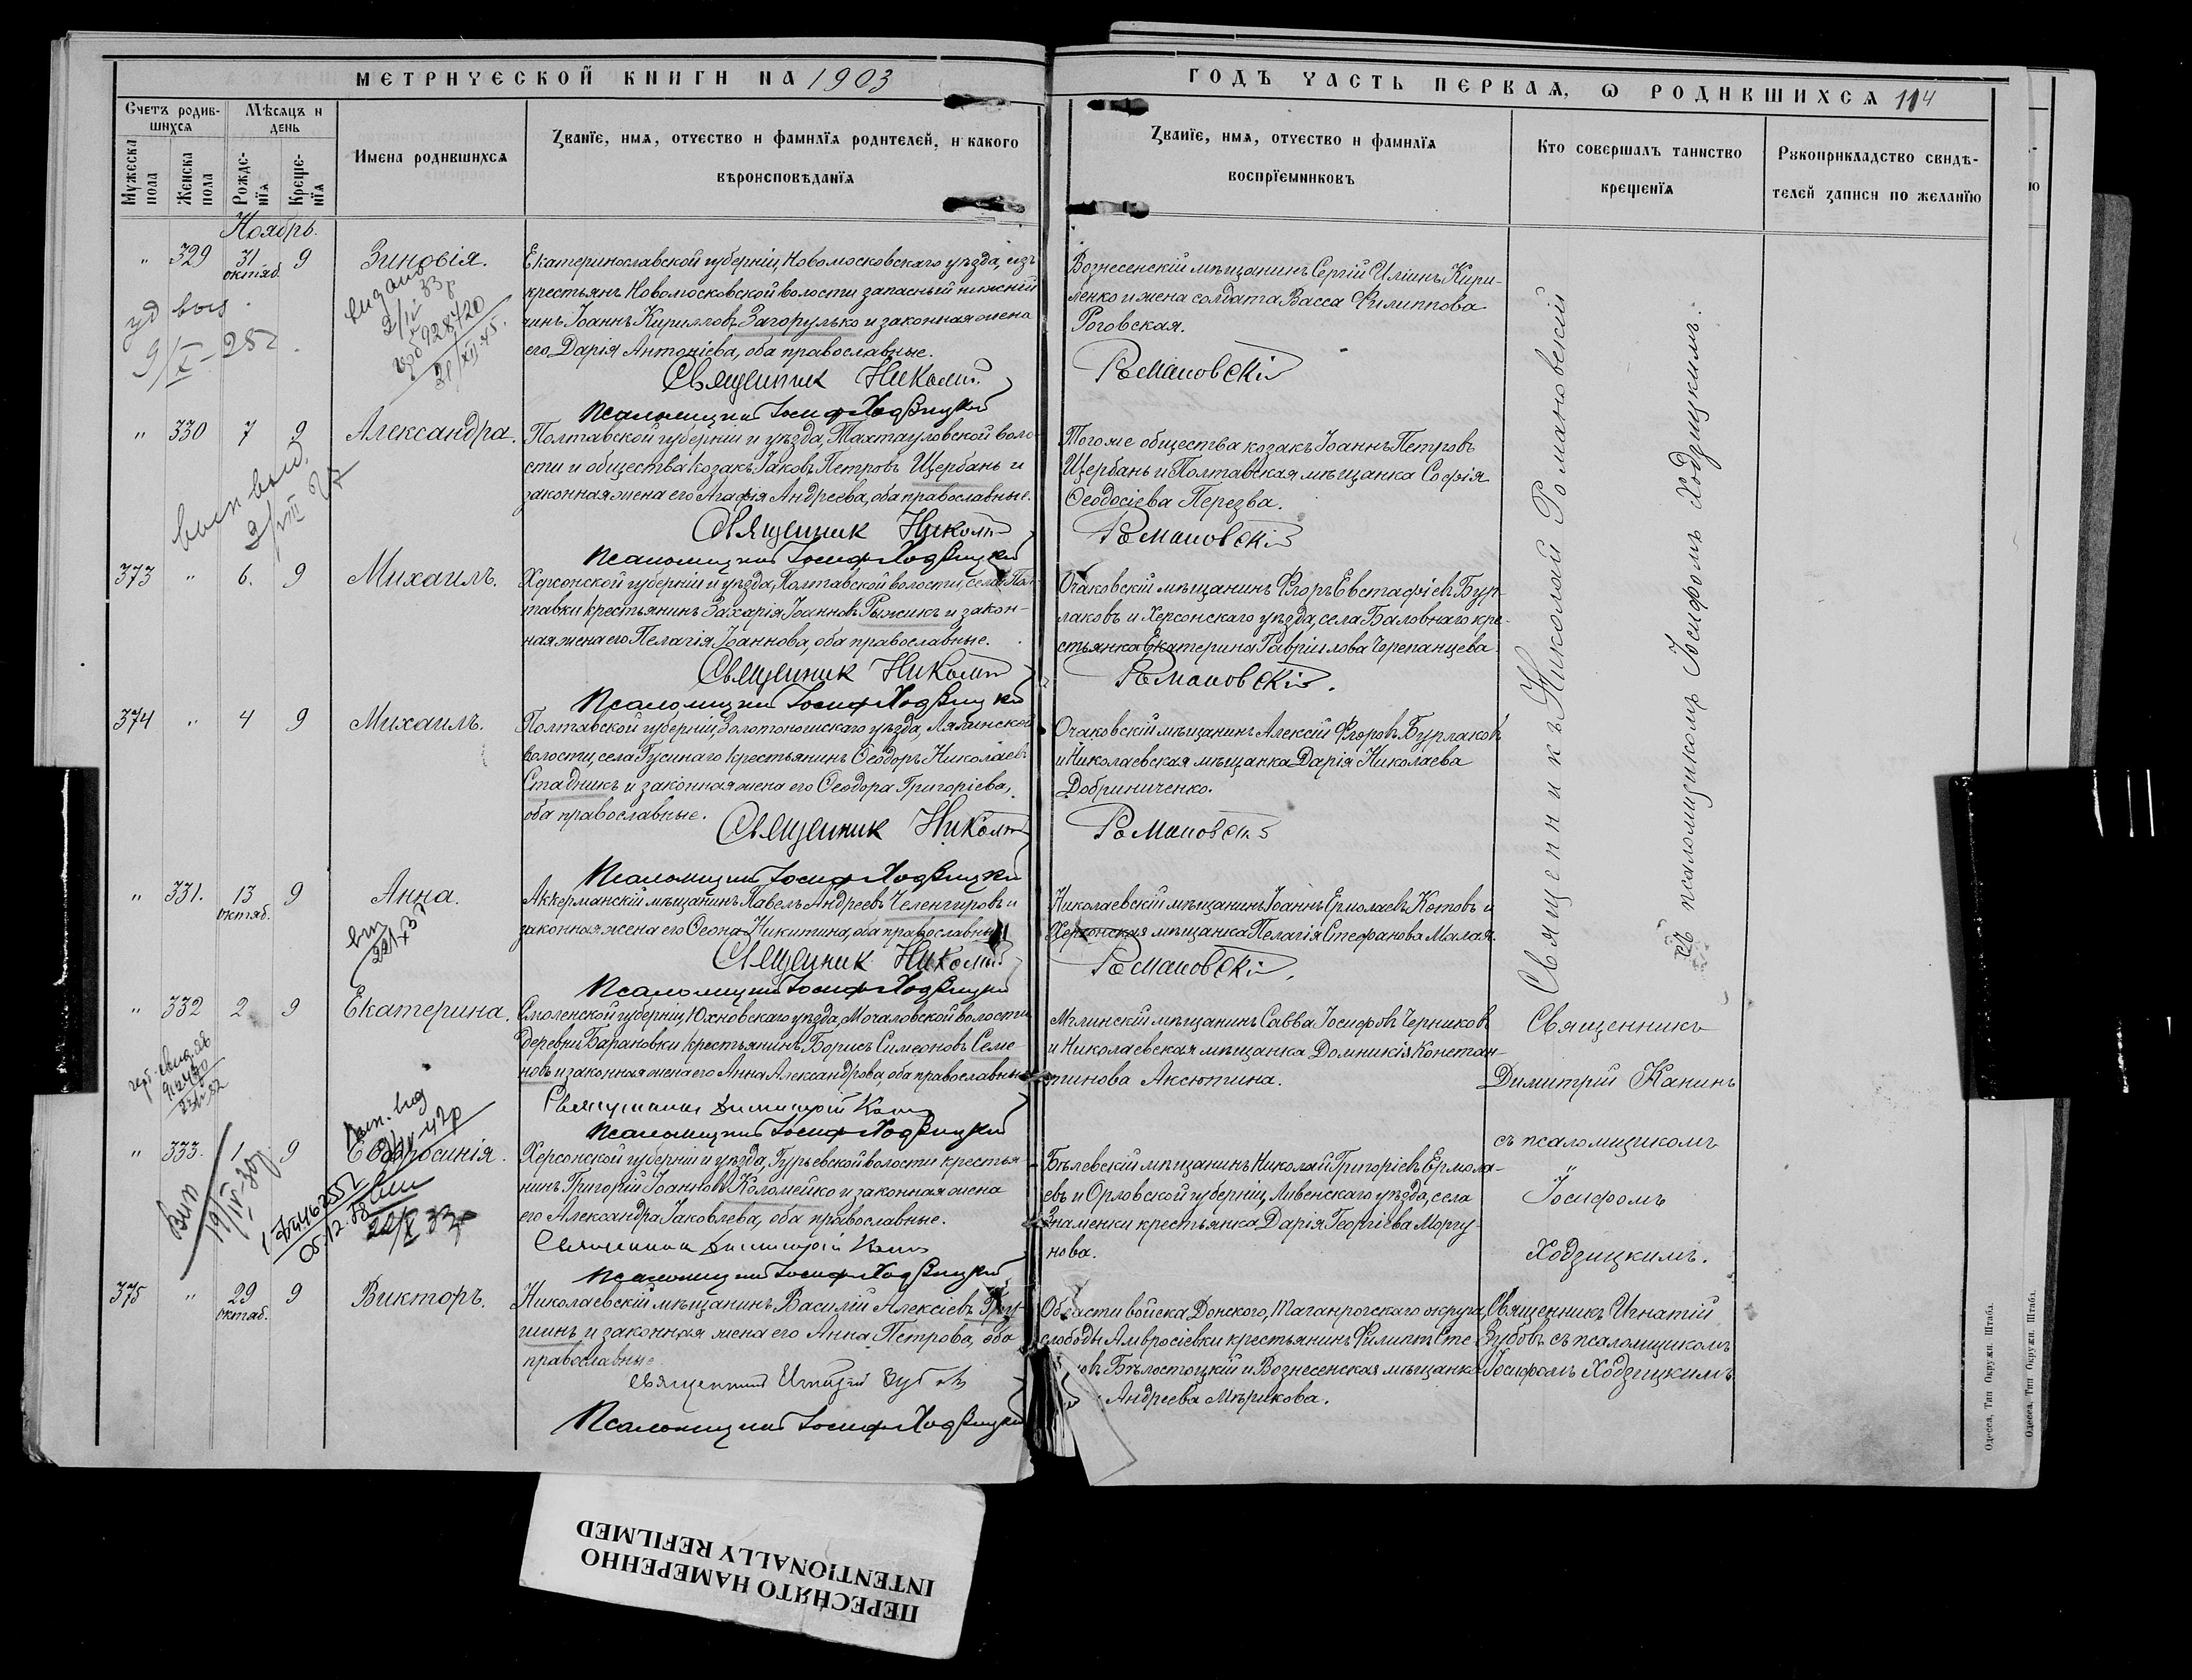 МЕТРИЧЕСКОЙ КНИГИ НА 1903
ГОДЪ ЧАСТЬ ПЕРВАЯ, Ѡ РОДИВШИХСЯ 114
Счетъ родив-
шихся
Мѣсяцъ и
день
Мужеска
пола
Женска
пола
Рожде-
нія
Креще-
нія
Имена родившихся
Званіе, имя, отчество и фамилія родителей, и какого
вѣроисповѣданія
Званіе, имя, отчество и фамилія
воспріемниковъ
Кто совершалъ таинство
крещенія
Рукоприкладство свидѣ-
телей записи по желанію
Ноябрь.
" 329 31 октяб. 9 Зиновія.
Екатеринославской губерніи, Новомосковскаго уѣзда, изъ
крестьянъ Новомосковской волости запасный нижній
чинъ Іоаннъ Кирилловъ Загорулько и законная жена
его Дарія Антоніева, оба православные.
Священник Николай
Романовскій
Псаломщикъ Іосифъ Ходзицкій
Вознесенскій мѣщанинъ Сергій Иліинъ Кири-
ленко и жена солдата Васса Филиппова
Роговская.
9/X - 28 г.
928420
" 330 7 9 Александра.
Полтавской губерніи и уѣзда, Тахтауловской воло-
сти и общества козакъ Іаковъ Петровъ Щербань и
законная жена его Агафія Андреева, оба православные.
Священник Николай
Романовскій
Псаломщикъ Іосифъ Ходзицкій
Того же общества козакъ Іоаннъ Петровъ
Щербань и Полтавская мѣщанка Софія
Ѳеодосіева Перезва.
373 " 6. 9 Михаилъ.
Херсонской губерніи и уѣзда, Полтавской волости, села Пол-
тавки крестьянинъ Захарія Іоанновъ Рыжикъ и закон-
ная жена его Пелагія Іоаннова, оба православные.
Священник Николай
Романовскій.
Псаломщикъ Іосифъ Ходзицкій
Очаковскій мѣщанинъ Ѳеодоръ Евстафіевъ Бур-
лаковъ и Херсонскаго уѣзда, села Баловнаго кре-
стьянка Екатерина Гавріилова Черепанцева.
374 " 4 9 Михаилъ.
Полтавской губерніи, Золотоношскаго уѣзда, Лялинской
волости, села Гусинаго крестьянинъ Ѳеодоръ Николаевъ
Стадникъ и законная жена его Ѳеодора Григоріева,
оба православные.
Священник Николай
Романовскій
Псаломщикъ Іосифъ Ходзицкій
Очаковскій мѣщанинъ Алексій Ѳеодоровъ Бурлаковъ
и Николаевская мѣщанка Дарія Николаева
Добриниченко.
" 331. 13 октяб. 9 Анна.
Аккерманскій мѣщанинъ Павелъ Андреевъ Челенгировъ и
законная жена его Ѳеона Никитина, оба православные
Священник Николай
Романовскій.
Псаломщикъ Іосифъ Ходзицкій
Николаевскій мѣщанинъ Іоаннъ Ермолаевъ Котовъ и
Херсонская мѣщанка Пелагія Стефанова Малая.
Священникъ Николай Романовскій
съ псаломщикомъ Іосифомъ Ходзицкимъ.
" 332 2 9 Екатерина.
Смоленской губерніи, Юхновскаго уѣзда, Мочаловской волости
деревни Барановки крестьянинъ Борисъ Симеоновъ Семе-
новъ и законная жена его Анна Александрова, оба православные
Священникъ Димитрій Канинъ
Псаломщикъ Іосифъ Ходзицкій
Мглинскій мѣщанинъ Савва Іосифовъ Черниковъ
и Николаевская мѣщанка Домникія Констан-
тинова Аксютина.
Священникъ
Димитрій Канинъ
съ псаломщикомъ
Іосифомъ
Ходзицкимъ.
" 333. 1 9 Евфросинія.
Херсонской губерніи и уѣзда, Гурьевской волости крестья-
нинъ Григорій Іоанновъ Коломейко и законная жена
его Александра Іаковлева, оба православные.
Священникъ Димитрій Канинъ
Псаломщикъ Іосифъ Ходзицкій
Бѣлевскій мѣщанинъ Николай Григоріевъ Ермола-
евъ и Орловской губерніи, Ливенскаго уѣзда, села
Знаменки крестьянка Дарія Георгіева Моргу-
нова.
375 " 29 октяб. 9 Викторъ.
Николаевскій мѣщанинъ Василій Алексіевъ
шинъ и законная жена его Анна Петрова, оба
православные
Священникъ Игнатій Зубовъ
Псаломщикъ Іосифъ Ходзицкій
Области войска Донского, Таганрогскаго округа,
слободы Амвросіевки крестьянинъ Филиппъ Сте-
новъ Бѣлостоцкій и Вознесенская мѣщанка
Андреева Мѣрикова.
Священникъ Игнатій
Зубовъ съ псаломщикомъ
Іосифомъ Ходзицкимъ
Одесса, Тип Окружн. Штаба.
Одесса, Тип Окружн. Штаба.
ПЕРЕСНЯТО НАМЕРЕННО
INTENTIONALLY REFILMED